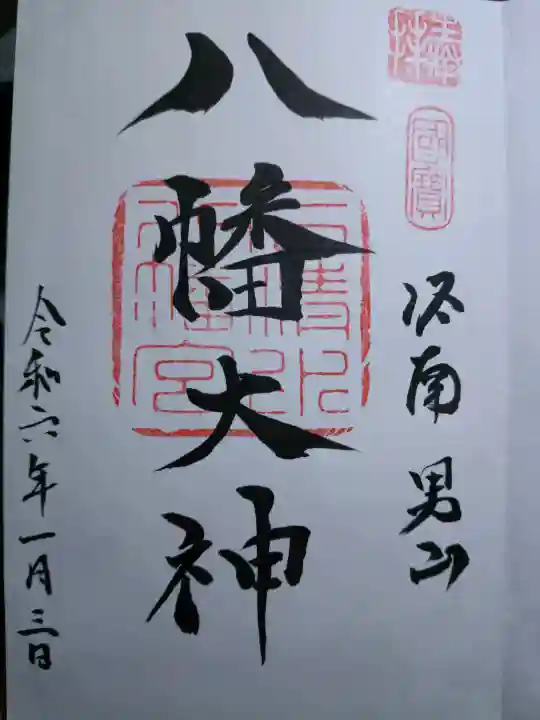 奉拝
國寶
洛南 男山
八幡大神
石清水八幡宮
令和六年一月三日